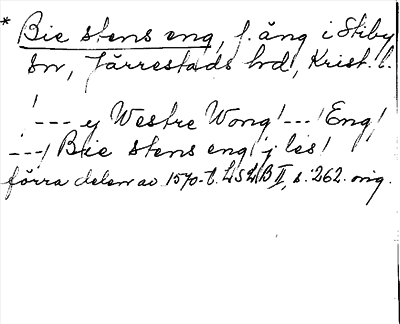 * Bie stens eng, f. äng i Stiby
sn, Järrestads hd, Krist. l.
/--- ej Westre Wong/---/Eng/
---/ Bxie stens eng/ j les/
förra delen av 1570-t. LSLB II, s. 262. orig.